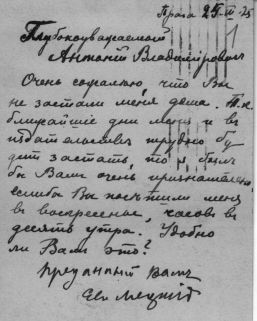 Прага 25-III-25
Глубокоуважаемый
Антоній Владиміровичъ
Очень сожалѣю, что Вы
не застали меня дома. Т.к.
ближайшіе дни меня и въ
издательствѣ трудно бу
детъ застать, то я былъ
бы Вамъ очень признателенъ,
еслибъ Вы посѣтили меня
въ воскресенье, часовъ въ
десять утра. Удобно
ли Вамъ это?
Преданный Вамъ